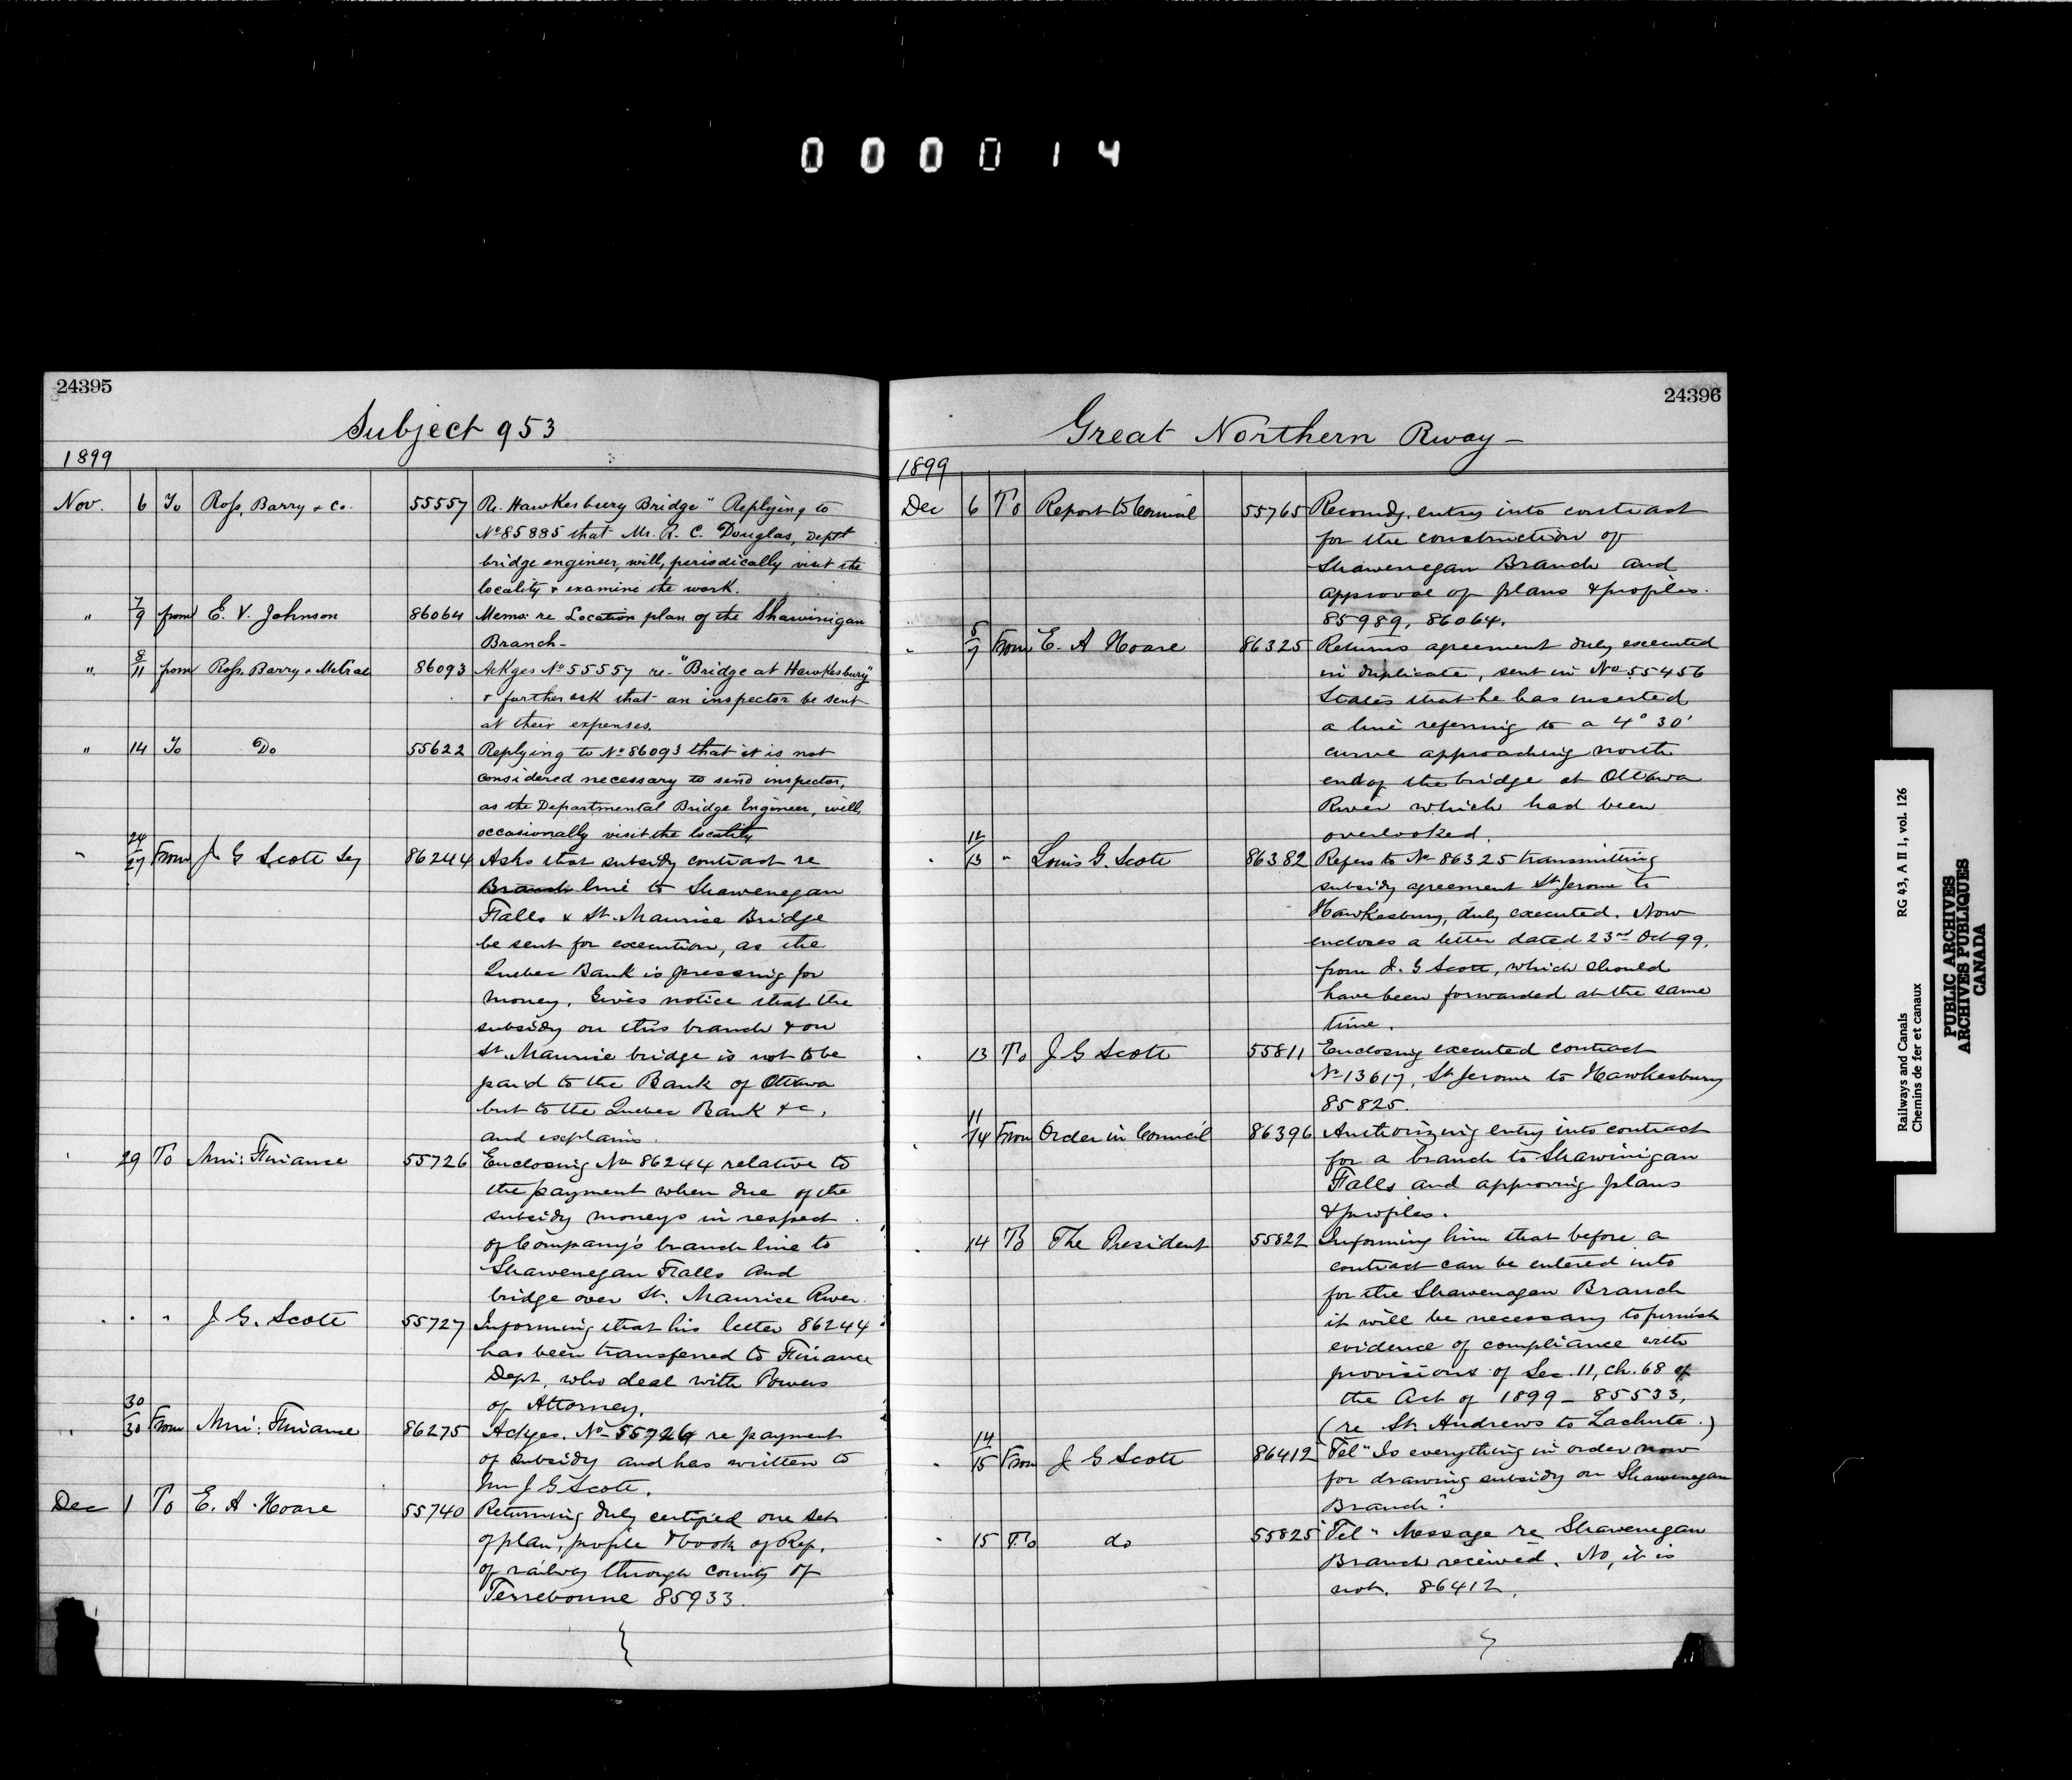 000014
24395
Subject 953
1899
Nov. 6 To Ross, Barry & Co. 55557 Re. Hawkesbury Bridge" Replying to
No 85885 that Mr. R. C. Douglas, Deptl
bridge engineer, will, periodically visit the
locality & examine the work.
" 7/9 from E. V. Johnson 86064 Memo: re Location plan of the Shawinigan
Branch-
" 8/11 from Ross, Barry & McCrae 86093 Ackges No 55557 re- "Bridge at Hawkesbury"
& further ask that an inspector be sent
at their expenses.
" 14 To Do 55622 Replying to No 86093 that it is not
considered necessary to send inspector,
as the Departmental Bridge Engineer, will,
occasionally visit the locality
" 24/27 From J. G Scott Sey 86244 Asks that subsidy contract re
Branch line to Shawenegan
Falls & St. Maurice Bridge
be sent for execution, as the
Quebec Bank is pressing for
money. Gives notice that the
subsidy on this branch & on
St. Maurice bridge is not to be
paid to the Bank of Ottawa
but to the Quebec Bank &c,
and explains.
" 29 To Min: Finance 55726 Enclosing No 86244 relative to
the payment when due of the
subsidy moneys in respect
of Company's branch line to
Shawenegan Falls and
bridge over St. Maurice River.
" " " J. G. Scott 55727 Informing that his letter 86244
has been transferred to Finance
Dept, who deal with Powers
of Attorney.
" 30/30 From Min: Finance 86275 Ackges. No 55726 re payment
of subsidy and has written to
Mr J G Scott.
Dec 1 To E. A. Hoare 55740 Returning duly certified one set
of plan, profile & book of Rep,
of railway through county of
Terrebonne 85933.
24396
Great Northern Rway-
1899
Dec 6 To Report to Council 55765 Recomdg. entry into contract
for the construction of
Shawenegan Branch and
approval of plans & profiles.
85989, 86064.
" 5/7 From E. A Hoare 86325 Returns agreement duly executed
in duplicate, sent in No 55456
States that he has inserted
a line referring to a 4° 30'
curve approaching north
end of the bridge at Ottawa
River which had been
overlooked.
" 12/13 " Louis G. Scott 86382 Refers to No 86325 transmitting
subsidy agreement St Jerome to
Hawkesbury, duly executed. Now
encloses a letter dated 23rd Oct 99,
from J. G Scott, which should
have been forwarded at the same
time.
" 13 To J G Scott 55811 Enclosing executed contract
No 13617, St Jerome to Hawkesbury
85825.
" 11/14 From Order in Council 86396 Authorizing entry into contract
for a branch to Shawinigan
Falls and approving plans
& profiles.
" 14 To The President 55822 Informing him that before a
contract can be entered into
for the Shawenagan Branch
it will be necessary to furnish
evidence of compliance with
provisions of Sec. 11, ch. 68 of
the Act of 1899 - 85533,
(re St. Andrews to Lachute.)
" 14/15 From J G Scott 86412 Tel" Is everything in order now
for drawing subsidy on Shawenegan
Branch?
" 15 To do 55825 Tel" Message re Shawenegan
Branch received. No, it is
not. 86412.
Railways and Canals RG 43, A II 1, vol. 126
Chemins de fer et canaux
PUBLIC ARCHIVES
ARCHIVES PUBLIQUES
CANADA